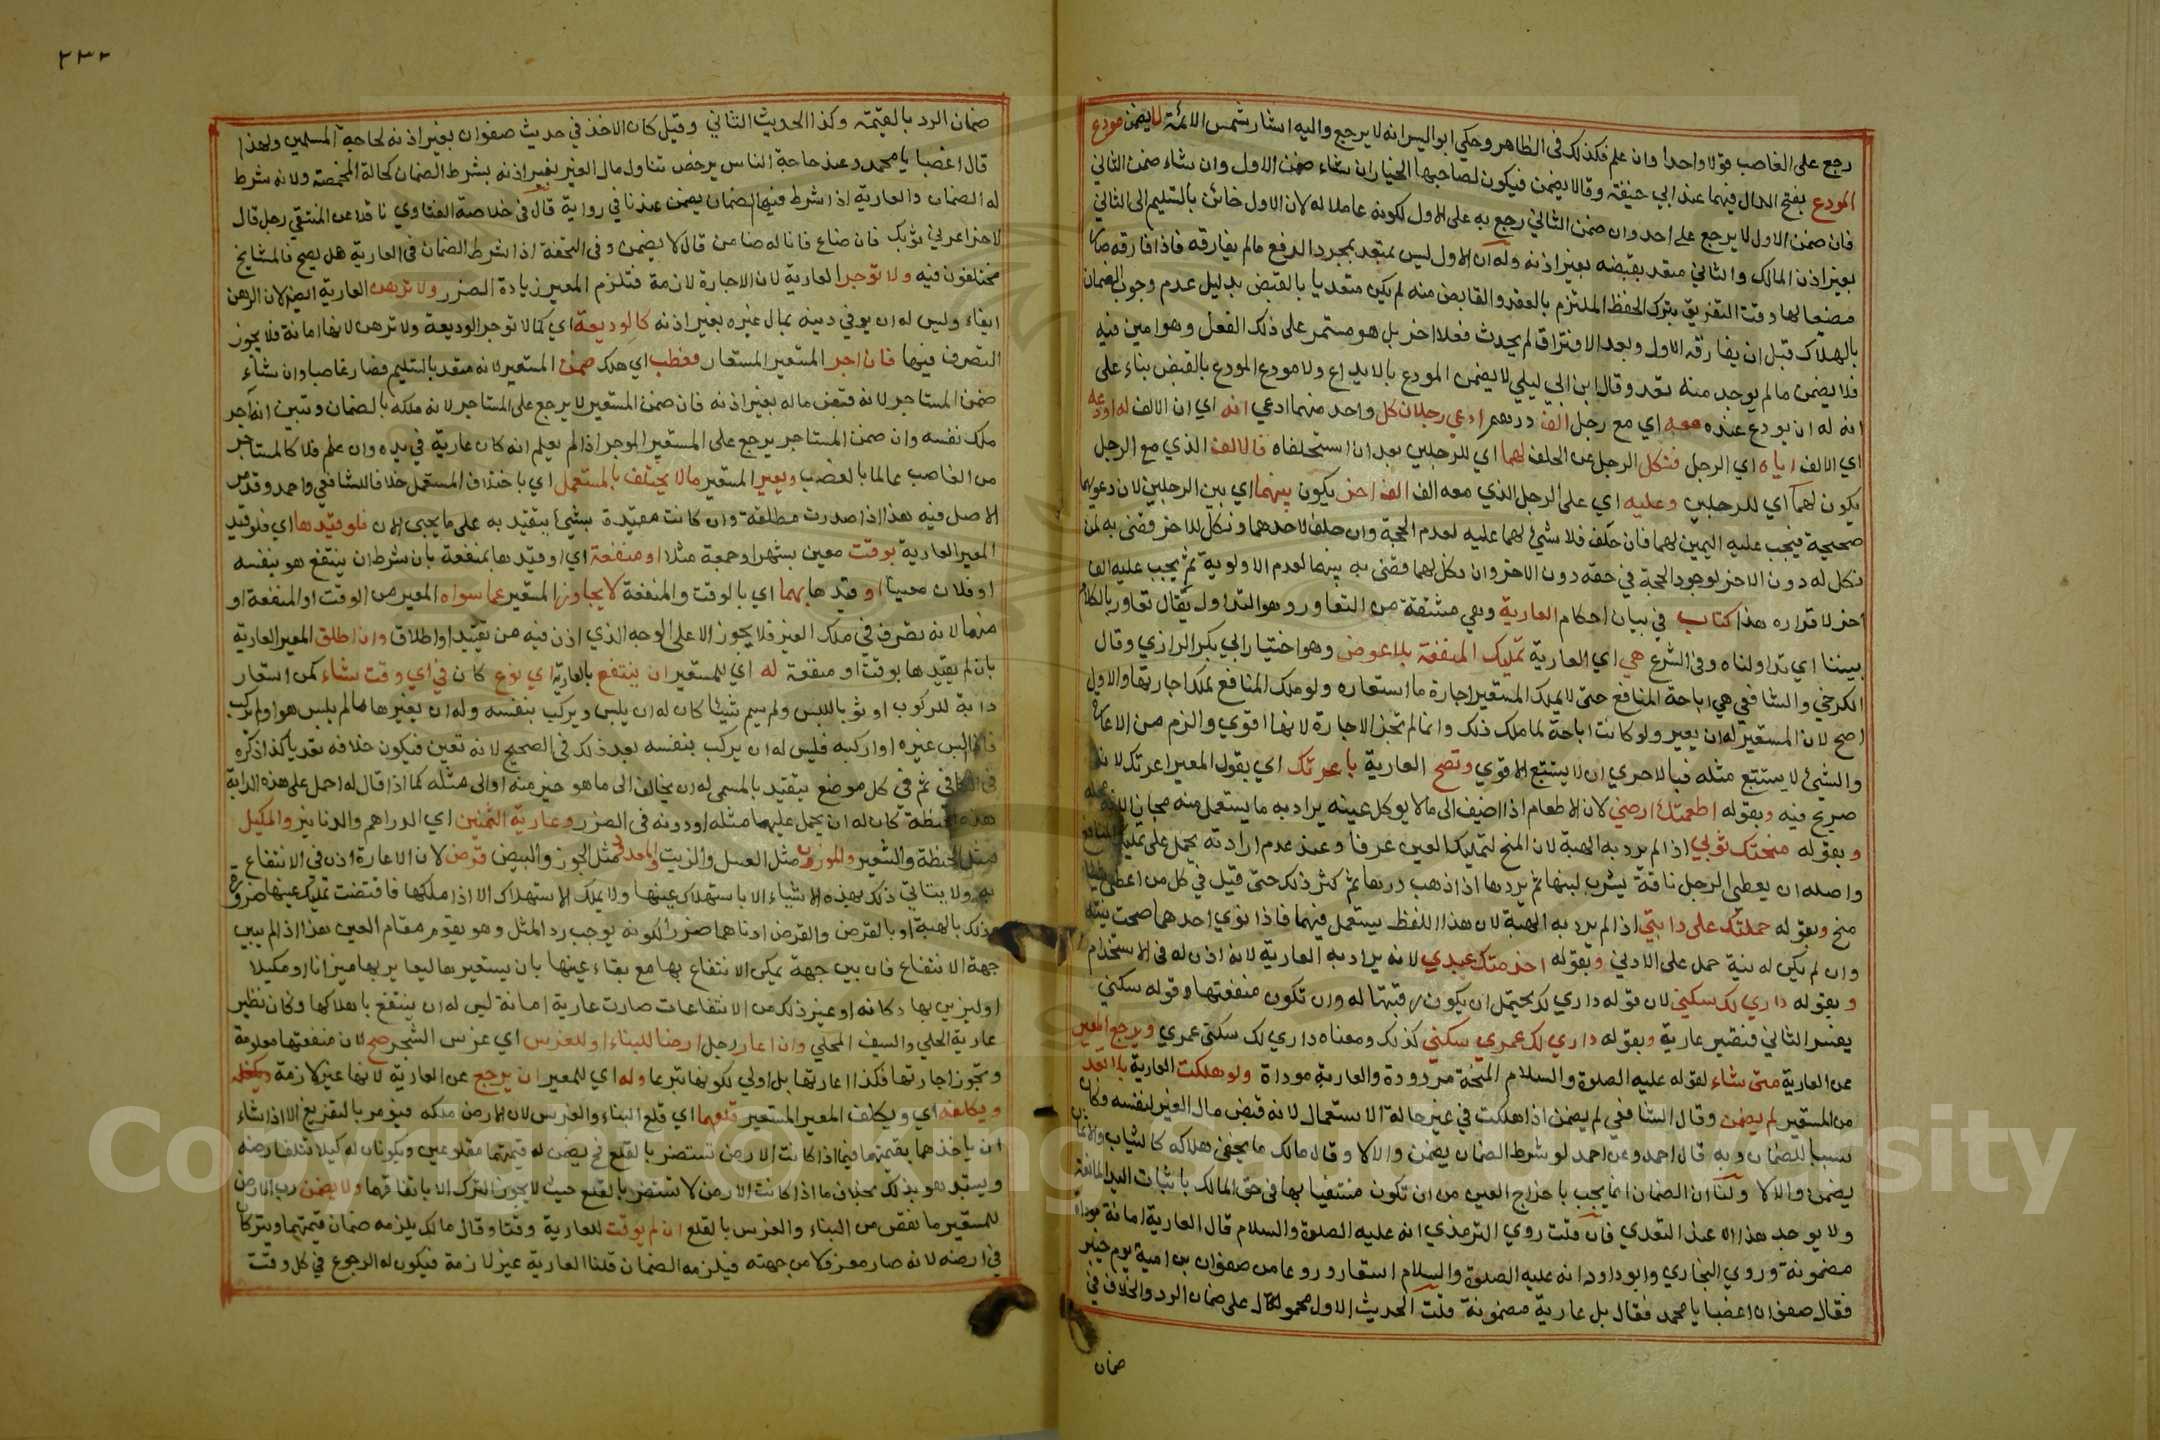 رجع على الغاصب قولا واحدا وان علم فكذلك في الظاهر وحكى ابو اليسر انه لا يرجع واليه اشار شمس الائمة لا يضمن مودع
المودع بفتح الدال فيهما عند ابي حنيفة وقالا يضمن فيكون لصاحبها الخيار ان شاء ضمن الاول وان شاء ضمن الثاني
فان ضمن الاول لا يرجع على احد وان ضمن الثاني رجع به على الاول لكونه عاملا له لان الاول خائن بالتسليم الى الثاني
بغير اذن المالك والثاني متعد بقبضه بغير اذنه وله ان الاول ليس بمتعد بمجرد الدفع ما لم يفارقه فاذا فارقه صار
مضيعا لها وقت التفريق بترك الحفظ الملتزم بالعقد والقابض منه لم يكن متعديا بالقبض بدليل عدم وجوب الضمان
بالهلاك قبل ان يفارقه الاول وبعد الافتراق لم يحدث فعلا اخر بل هو مستمر على ذلك الفعل وهو امين فيه
فلا يضمن ما لم يوجد منه تعد وقال ابن ابي ليلى لا يضمن المودع بالايداع ولا مودع المودع بالقبض بناء على
انه له ان يودع عنده معه اي مع رجل الف درهم ادعى رجلان كل واحد منهما ادعى انه اي ان الالف له اودعه
اي الالف اياه اي الرجل فنكل الرجل عن الحلف لهما اي للرجلين بعد ان استحلفاه فالالف الذي مع الرجل
يكون لهما اي للرجلين وعليه اي على الرجل الذي معه الف الف اخر يكون بينهما اي بين الرجلين لان دعواهما
صحيحة فيجب عليه اليمين لهما فان حلف فلا شئ لهما عليه لعدم الحجة وان حلف لاحدهما ونكل للاخر قضى به لمن
نكل له دون الاخر لوجود الحجة في حقه دون الاخر وان نكل لهما قضى به بينهما لعدم الاولوية ثم يجب عليه الف
اخر لاقراره هذا كتاب في بيان احكام العارية وهي مشتقة من التعاور وهو التداول يقال تعاور بالكلام
بيننا اي تداولناه وفي الشرع هي اي العارية تمليك المنفعة بلا عوض وهو اختيار ابي بكر الرازي وقال
الكرخي والشافعي هي اباحة المنافع حتى لا يملك المستعير اجارة ما استعاره ولو ملك المنافع لملك اجارتها والاول
اصح لان المستعير له ان يعير ولو كانت اباحة لما ملك ذلك وانما لم تجز الاجارة لانها اقوى والزم من الاعارة
والشئ لا يستتبع مثله فبالاحرى ان لا يستتبع الاقوى وتصح العارية باعرتك اي بقول المعير اعرتك لانه
صريح فيه وبقوله اطعمتك ارضي لان الاطعام اذا اضيف الى ما لا يوكل عينه يراد به ما يستعمل منه مجازا
وبقوله منحتك ثوبي اذا لم يرد به الهبة لان المنح لتمليك العين عرفا وعند عدم ارادته يحمل على تمليك المنافع
واصله ان يعطى الرجل ناقة يشرب لبنها ثم يردها اذا ذهب درها ثم كثر ذلك حتى قيل في كل من اعطى شيئا
منح وبقوله حملتك على دابتي اذا لم يرد به الهبة لان هذا اللفظ يستعمل فيهما فاذا نوى احدهما صحت نيته
وان لم يكن له نية حمل على الادنى وبقوله اخدمتك عبدي لانه يراد به العارية لانه اذن له في الاستخدام
وبقوله داري لك سكنى لان قوله داري لك يحتمل ان يكون رقبتها له وان تكون منفعتها وقوله سكنى
يفسر الثاني فتصير عارية وبقوله داري لك عمري سكني كذلك ومعناه داري لك سكنى عمري ويرجع المعير
عن العارية متى شاء لقوله عليه الصلوة والسلام المنحة مردودة والعارية موداة ولو هلكت العارية بلا تعد
من المستعير لم يضمن وقال الشافعي لم يضمن اذا هلكت في غير حالة الاستعمال لانه قبض مال الغير لنفسه فكان
سببا للضمان وبه قال احمد وعن احمد لو شرط الضمان يضمن والا لا وقال مالك ما يخفى هلاكه كالثياب والاثمان
يضمن والا لا ولنا ان الضمان انما يجب باخراج العين من ان تكون منتفعا بها في حق المالك باثبات اليد المانعة
ولا يوجد هذا الا عند التعدي فان قلت روى الترمذي انه عليه الصلوة والسلام قال العارية امانة موداة
مضمونة وروى البخاري وابو داود انه عليه الصلوة والسلام استعار دروعا من صفوان بن امية يوم خيبر
فقال صفوان اغصبا يا محمد فقال بل عارية مضمونة قلت الحديث الاول محمول على ضمان الرد والخلاف في
ضمان
٢٣٢
ضمان الرد بالقيمة وكذا الحديث الثاني وقيل كان الاخذ في حديث صفوان بغير اذنه لحاجة المسلمين ولهذا
قال اغصبا يا محمد وعند حاجة الناس يرخص تناول مال الغير بغير اذنه بشرط الضمان كحالة المخمصة ولانه شرط
له الضمان والعارية اذا شرط فيها الضمان يضمن عندنا في رواية قال في خلاصة الفتاوي ناقلا عن المنتقى رجل قال
لاخر اعرني ثوبك فان ضاع فانا له ضامن قال لا يضمن وفي التحفة اذا شرط الضمان في العارية هل يصح فالمشايخ
مختلفون فيه ولا توجر العارية لان الاجارة لازمة فتلزم المعير زيادة الضرر ولا ترهن العارية ايضا لان الرهن
ايفاء وليس له ان يوفي دينه بمال غيره بغير اذنه كالوديعة اي كما لا توجر الوديعة ولا ترهن لانها امانة فلا يجوز
التصرف فيها فان اجر المستعير المستعار فعطب اي هلك ضمن المستعير لانه متعد بالتسليم فصار غاصبا وان شاء
ضمن المستاجر لانه قبض ماله بغير اذنه فان ضمن المستعير لا يرجع على المستاجر لانه ملكه بالضمان وتبين انه آجر
ملك نفسه وان ضمن المستاجر يرجع على المستعير الموجر اذا لم يعلم انه كان عارية في يده وان علم فلا كالمستاجر
من الغاصب عالما بالغصب ويعير المستعير ما لا يختلف بالمستعمل اي باختلاف المستعمل خلافا للشافعي واحمد وقد مر
الاصل فيه هذا اذا صدرت مطلقة وان كانت مقيدة بشئ يتقيد به على ما يجئ الان فلو قيدها اي فلو قيد
المعير العارية بوقت معين بشهر او جمعة مثلا او منفعة اي او قيدها بمنفعة بان شرط ان ينتفع هو بنفسه
او فلان معينا او قيدها بهما اي بالوقت والمنفعة لا يجاوز المستعير عما سواه المعير من الوقت او المنفعة او
منهما لانه تصرف في ملك الغير فلا يجوز الا على الوجه الذي اذن فيه من تقييد او اطلاق وان اطلق المعير العارية
بان لم يقيدها بوقت او منفعة له اي للمستعير ان ينتفع بالعارية اي نوع كان في اي وقت شاء كمن استعار
دابة للركوب او ثوبا للبس ولم يسم شيئا كان له ان يلبس ويركب بنفسه وله ان يعيرها ما لم يلبس هو او لم يركب
فاذا البس غيره او اركبه فليس له ان يركب بنفسه بعد ذلك في الصحيح لانه تعين فيكون خلافه تعديا كذا ذكره
في الكافي ثم في كل موضع يتقيد بالمسمى له ان يخالف الى ما هو خير منه او الى مثله كما اذا قال له احمل على هذه الدابة
هذه الحنطة كان له ان يحمل عليها مثله او دونه في الضرر وعارية الثمنين اي الدراهم والدنانير والمكيل
مثل الحنطة والشعير والموزون مثل العسل والزيت والمعدود مثل الجوز والبيض قرض لان الاعارة اذن في الانتفاع
به ولا يتاتى ذلك بهذه الاشياء الا باستهلاك عينها ولا يملك الاستهلاك الا اذا ملكها فاقتضت تمليك عينها ضرورة
وذلك بالهبة او بالقرض والقرض ادناهما ضررا لكونه يوجب رد المثل وهو يقوم مقام العين هذا اذا لم يبين
جهة الانتفاع فان بين جهة يمكن الانتفاع بها مع بقاء عينها بان يستعيرها ليعاير بها ميزانا او مكيلا
او ليزين بها دكانه او غير ذلك من الانتفاعات صارت عارية امانة ليس له ان ينتفع باهلاكها وكان نظير
عارية الحلي والسيف المحلى وان اعار رجل ارضا للبناء او للغرس اي غرس الشجر صح لان منفعتها معلومة
وتجوز اجارتها فكذا اعارتها بل اولى لكونها تبرعا وله اي للمعير ان يرجع عن العارية لانها غير لازمة
ويكلفه اي ويكلف المعير المستعير قلعهما اي قلع البناء والغرس لان الارض ملكه فيومر بالتفريغ الا اذا شاء
ان ياخذهما بقيمتهما فيما اذا كانت الارض تستضر بالقلع فح يضمن له قيمتهما مقلوعين ويكونان له كيلا تتلف ارضه
ويستبد هو بذلك بخلاف ما اذا كانت الارض لا تستضر بالقلع حيث لا يجوز الترك الا باتفاقهما ولا يضمن رب الارض
للمستعير ما نقص من البناء والغرس بالقلع ان لم يوقت للعارية وقتا وقال مالك يلزمه ضمان قيمتهما ويتركا
في ارضه لانه صار مغرورا من جهته فيلزمه الضمان قلنا العارية غير لازمة فيكون له الرجوع في كل وقت
Copyright © King Saud University